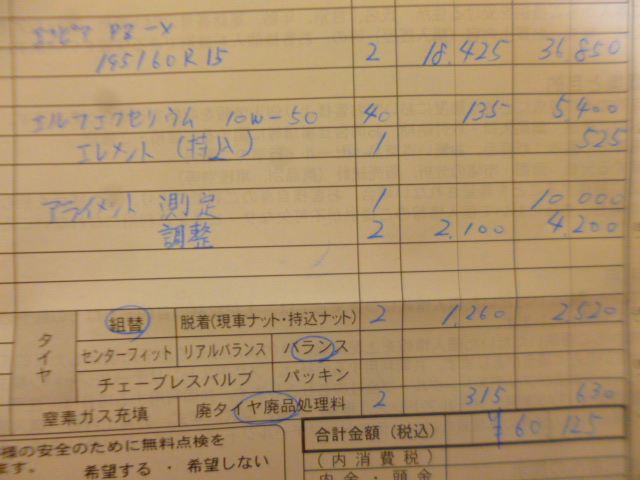 195/60R15 2 18,425 36,850
エルフエクセリウム 10W-50 40 135 5,400
エレメント (持込) 1 525
アライメント 測定 1 10,000
調整 2 2,100 4,200
タイヤ 組替 脱着(現車ナット・持込ナット) 2 1,260 2,520
センターフィット リアルバランス バランス
チューブレスバルブ パッキン
窒素ガス充填 廃タイヤ廃品処理料 2 315 630
合計金額(税込) ¥60 125
様の安全のために無料点検を
ます。 希望する ・ 希望しない
(内消費税)
内金・頭金